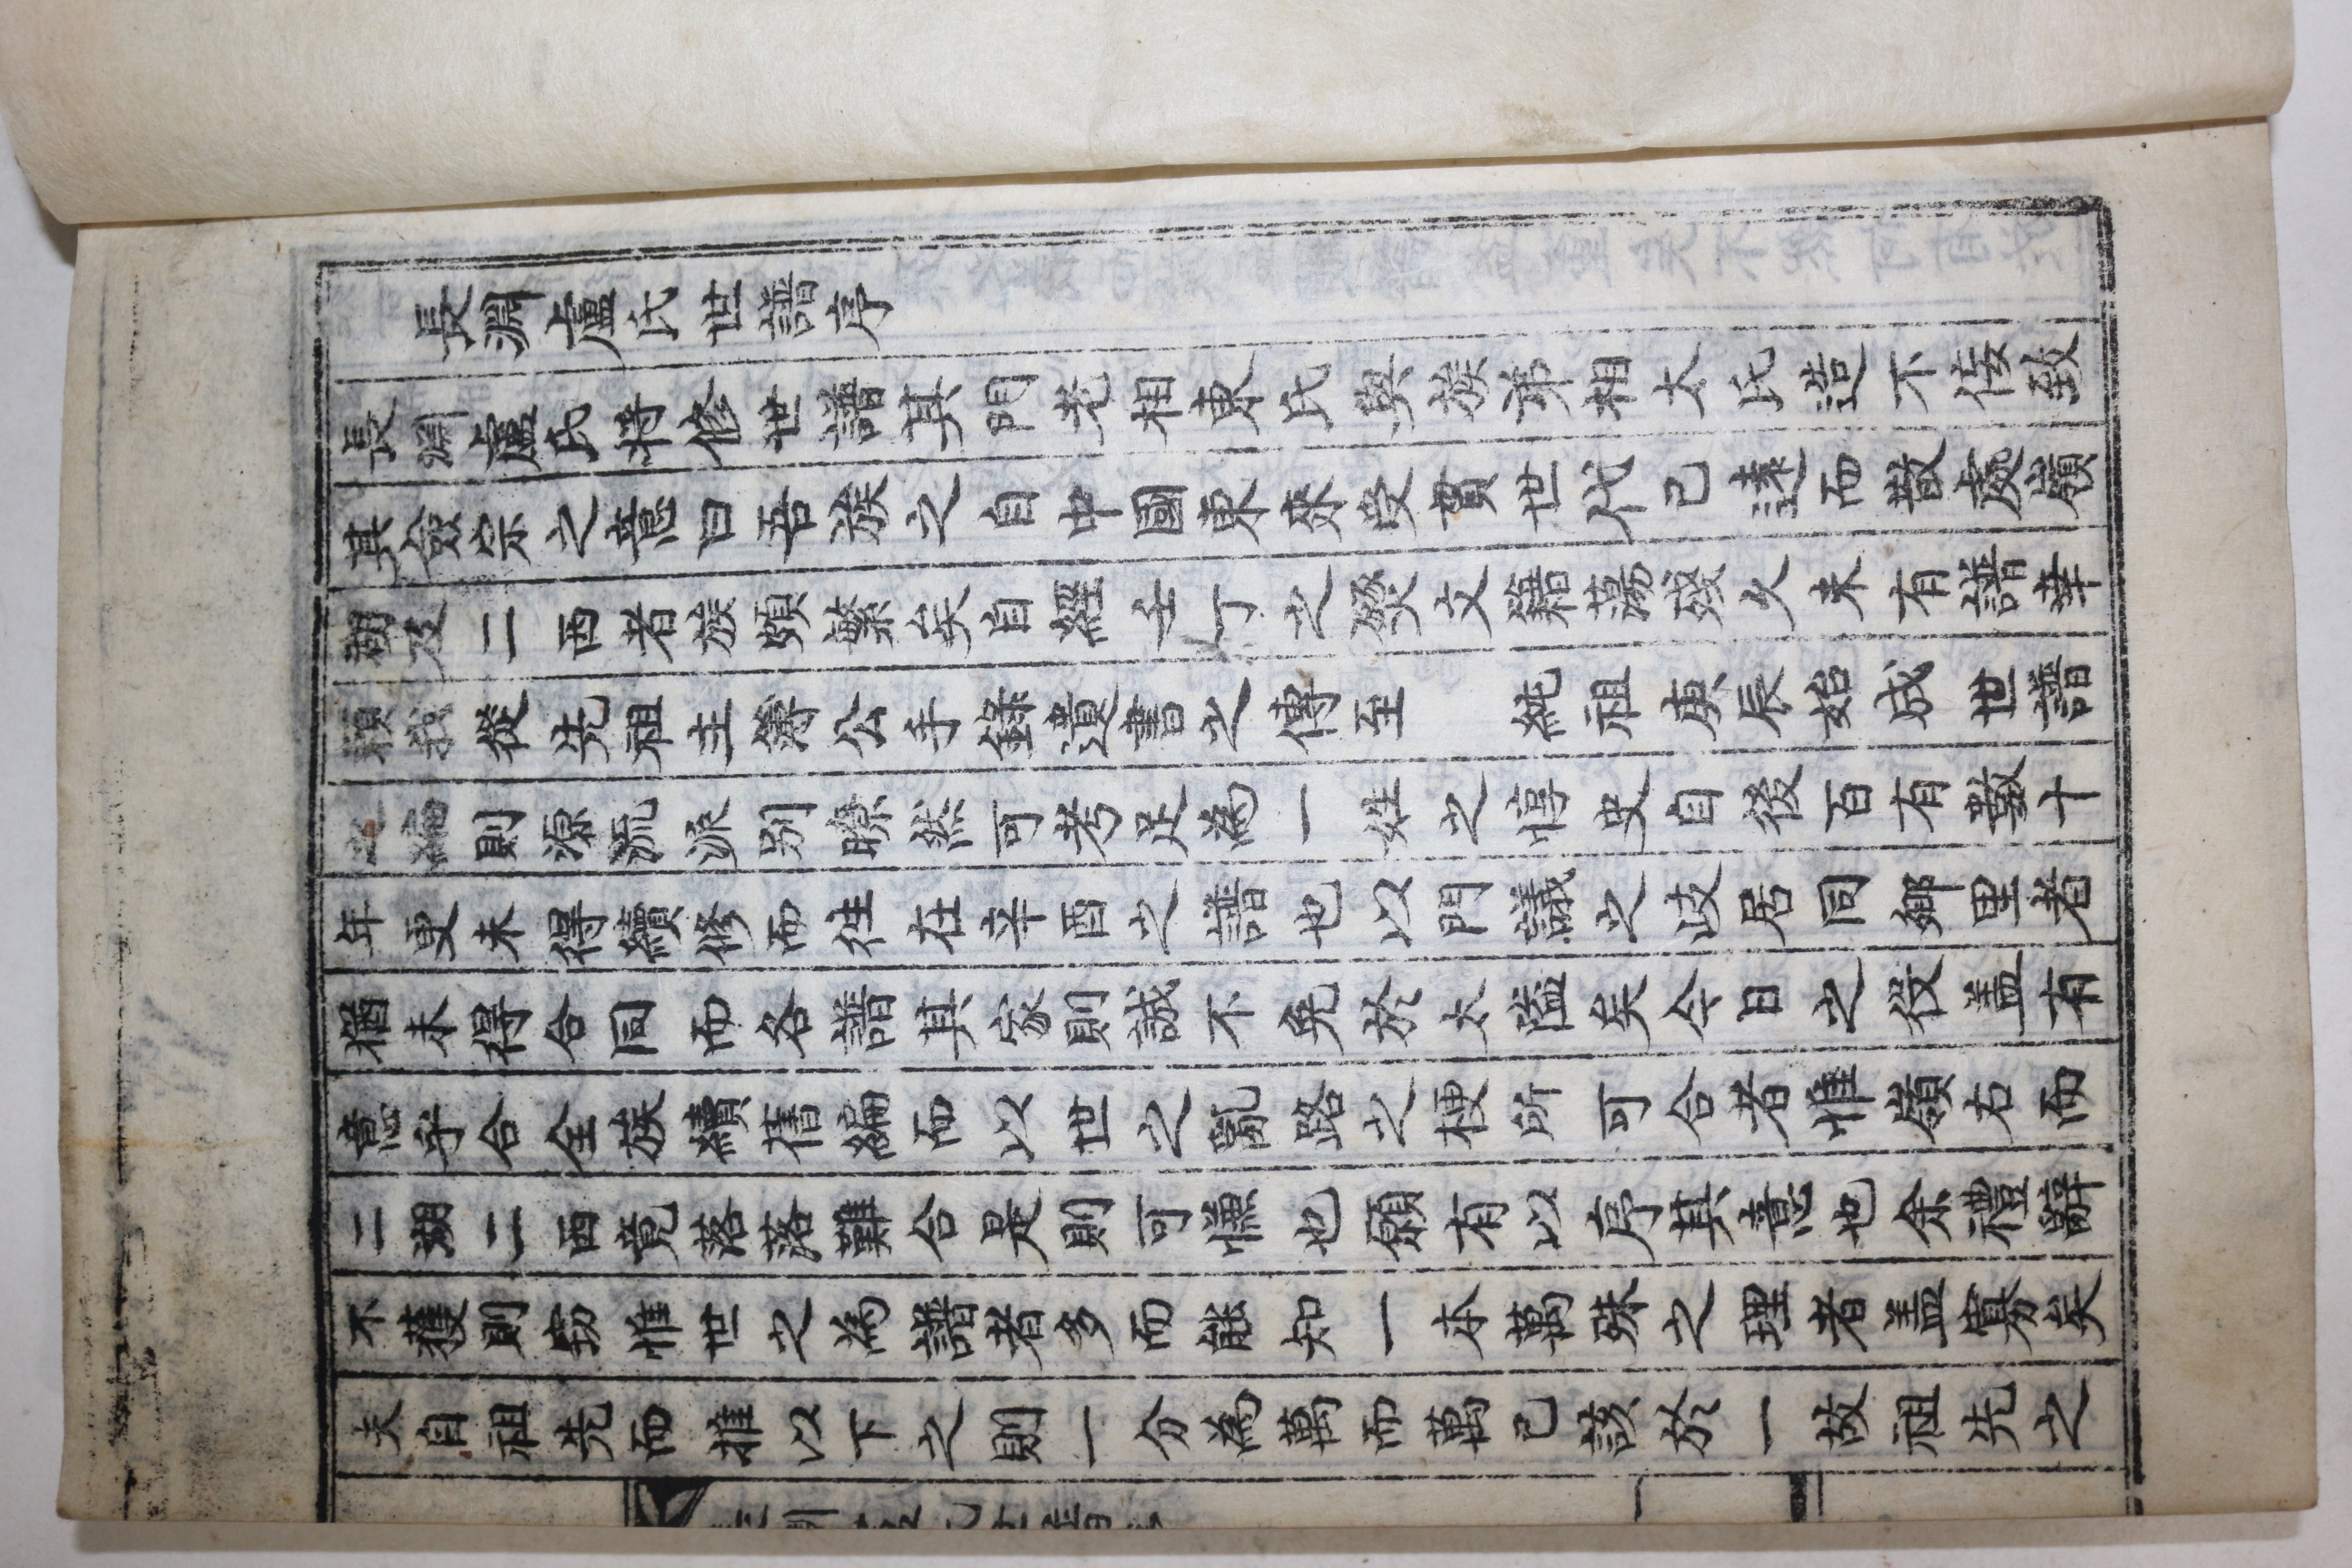 長淵盧氏世譜序
長淵盧氏特修世譜其門老相東氏與族弟相太氏造不侫致
其僉宗之意曰吾族之自中國東來受貫世代已遠而散處嶺
湖及二西者族頗繁矣自經壬丁之燹文籍蕩殘久未有譜幸
賴我從先祖主簿公手錄遺書之傳至 純祖庚辰始成世譜
之編則源流派別瞭然可考足為一姓之惇史自後百有數十
年更未得續修而往在辛酉之譜也以門議之岐居同鄉里者
猶未得合同而各譜其家則誠不免於太隘矣今日之役盖有
意乎合全族續舊編而以世之亂路之梗所可合者惟嶺右而
二湖二西竟落落難合是則可憮也願有以序其意也余禮辭
不獲則竊惟世之為譜者多而能知一本萬殊之理者盖寡矣
夫自祖先而推以下之則一分為萬而萬已該於一故祖先之
長淵盧氏世譜序